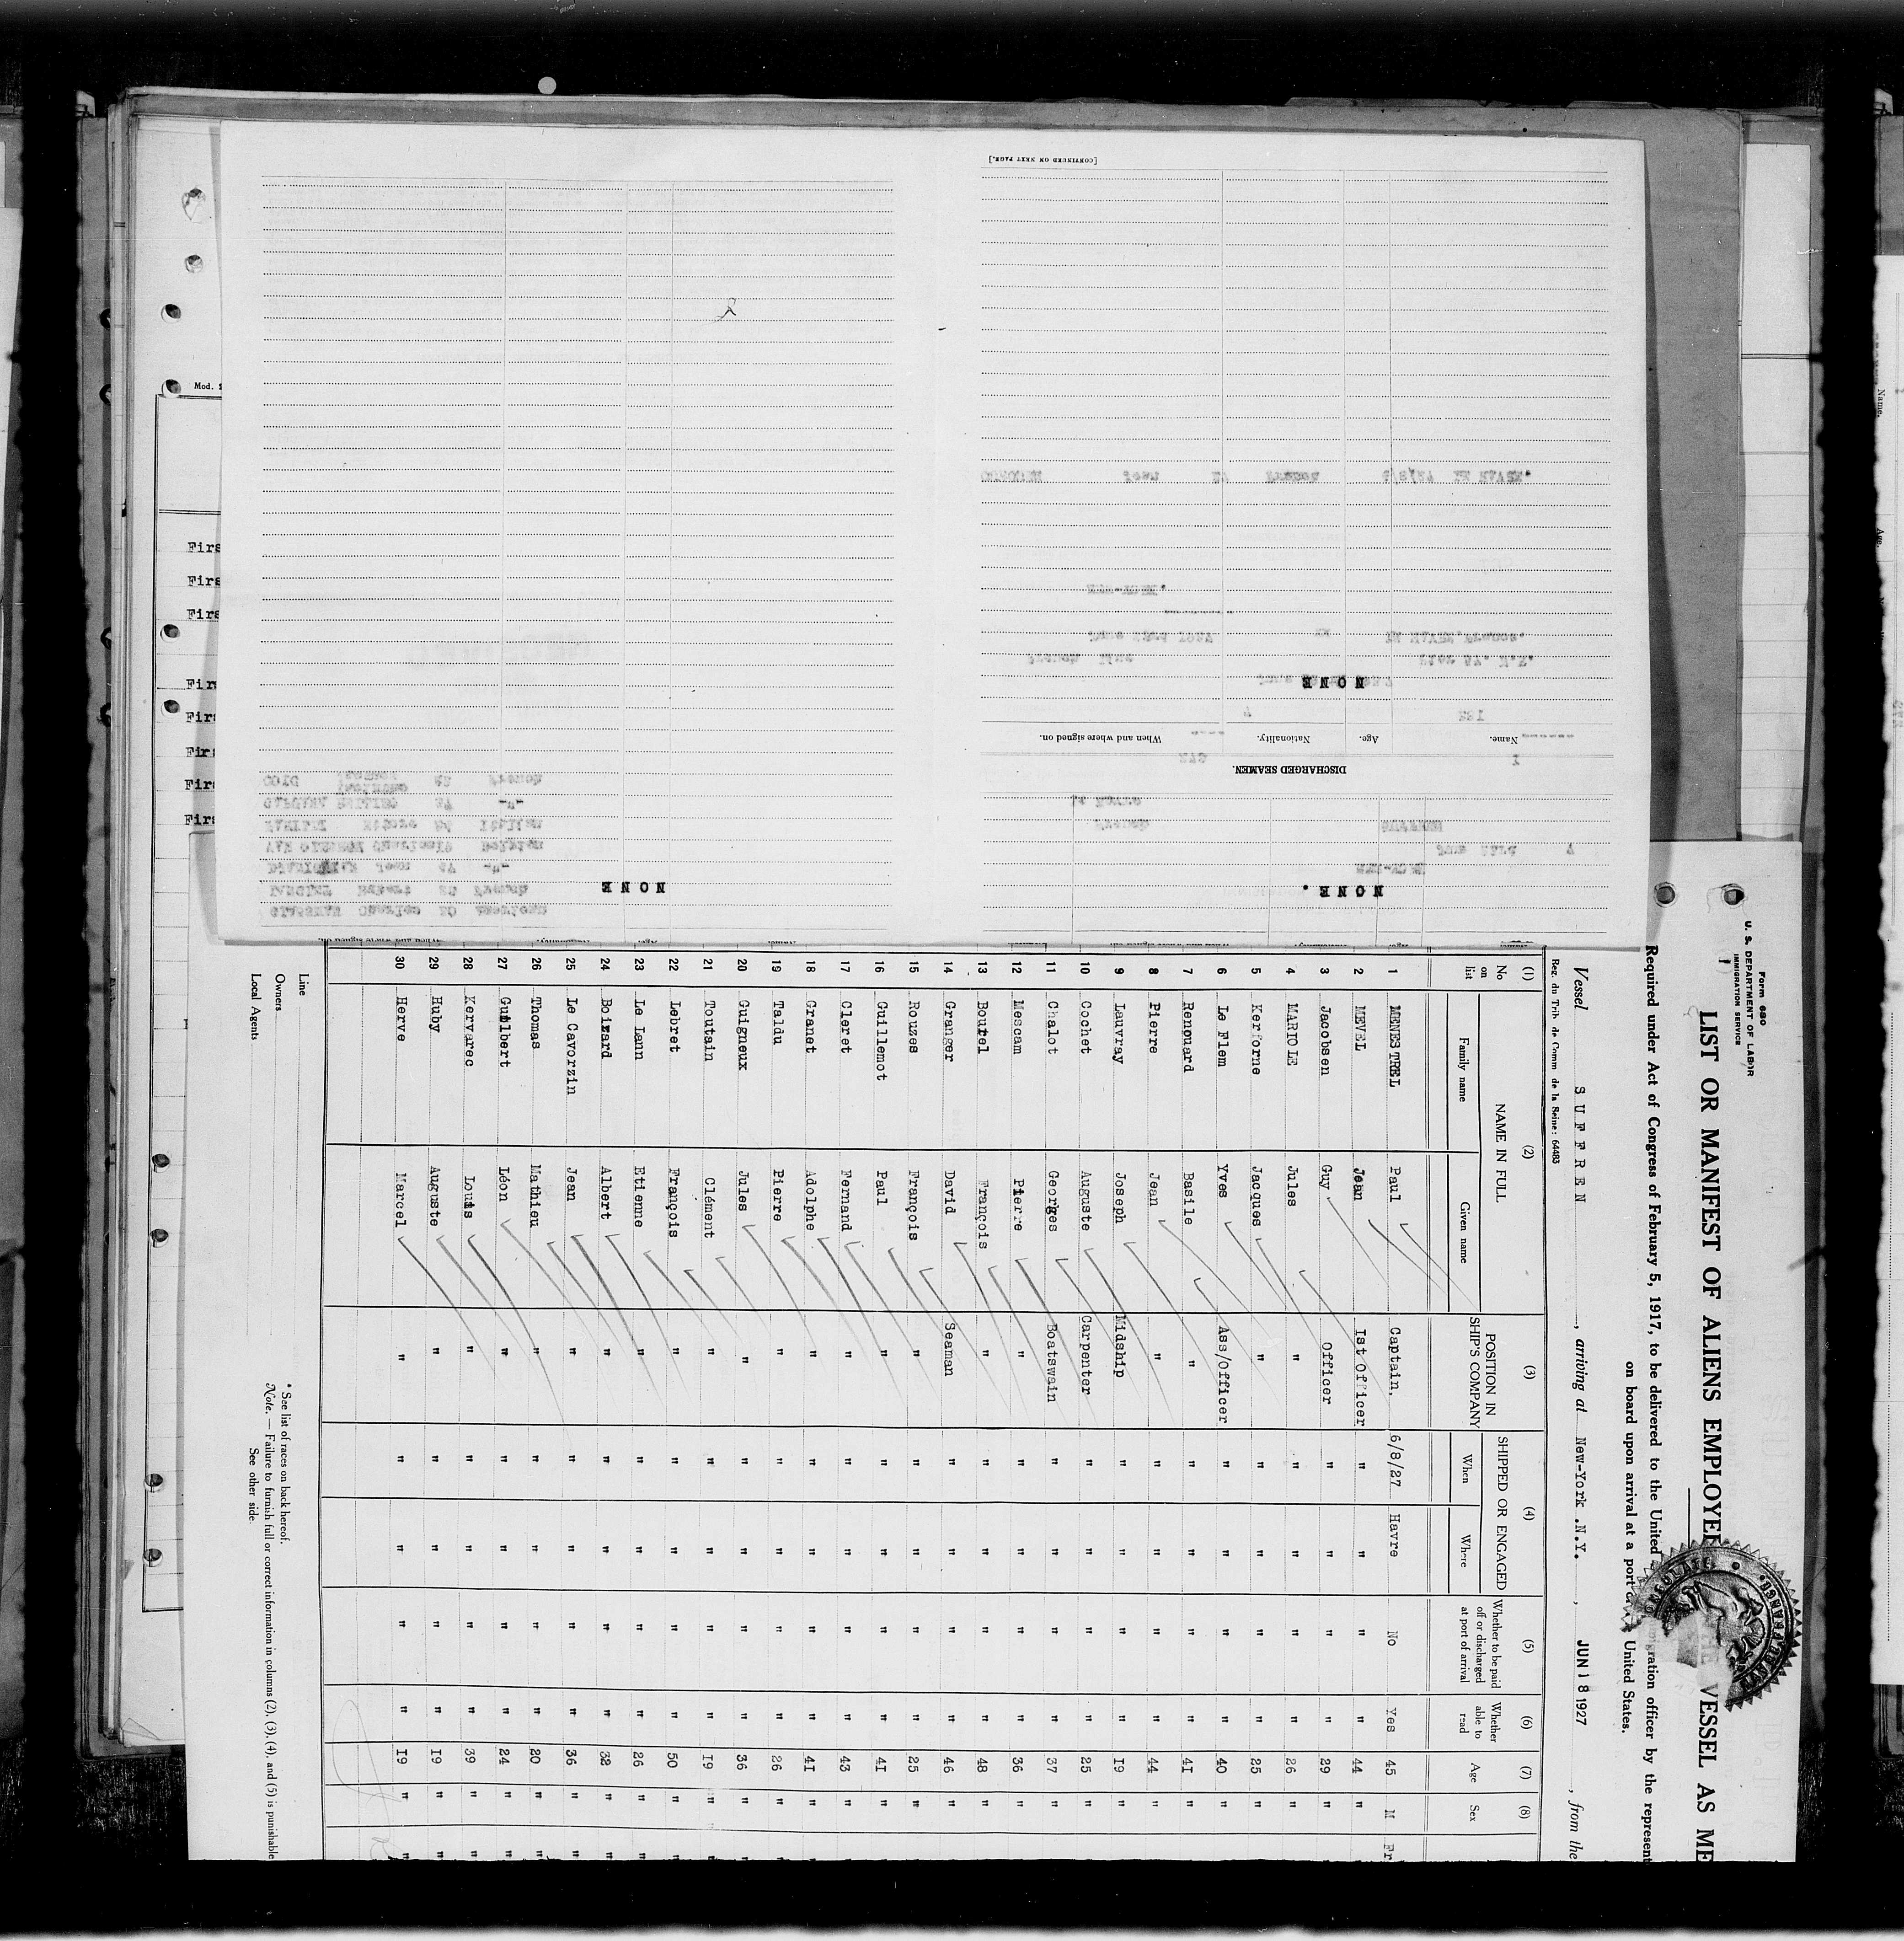 [CONTINUED ON NEXT PAGE.]
NONE
Name. Age. Nationality. When and where signed on.
DISCHARGED SEAMEN.
NONE.
NONE
Mod.
Firs
Firs
Firs
Firs
Firs
Firs
Firs
Firs
Form 680
U. S. DEPARTMENT OF LABOR
IMMIGRATION SERVICE
LIST OR MANIFEST OF ALIENS EMPLOYE VESSEL AS ME
Required under Act of Congress of February 5, 1917, to be delivered to the United gration officer by the represent
on board upon arrival at a port United States.
Vessel SUFFREN , arriving at New-York .N.Y. , JUN 18 1927 , from the
Reg. du Trib. de Comm de la Seine: 64483
(1) (2) (3) (4) (5) (6) (7) (8)
No on list NAME IN FULL POSITION IN SHIP'S COMPANY SHIPPED OR ENGAGED Whether to be paid off or discharged at port of arrival Whether able to read Age Sex
Family name Given name When Where
1 MENESTREL Paul Captain. 6/8/27 Havre No Yes 45 M Fr
2 MEVEL Jean Ist Officer " " " " 44 "
3 Jacobsen Guy Officer " " " " 29 "
4 MARIOLE Jules " " " " " 26 "
5 Kerforne Jacques " " " " " 25 "
6 Le Flem Yves Ass/Officer " " " " 40 "
7 Renouard Basile " " " " " 4I "
8 Pierre Jean " " " " " 44 "
9 Lauvray Joseph Midship " " " " I9 "
10 Cochet Auguste Carpenter " " " " 25 "
11 Chalot Georges Boatswain " " " " 37 "
12 Mescam Pierre " " " " " 36 "
13 Bourel François " " " " " 48 "
14 Granger David Seaman " " " " 46 "
15 Rouzes François " " " " " 25 "
16 Guillemot Paul " " " " " 4I "
17 Cleret Fernand " " " " " 43 "
18 Granet Adolphe " " " " " 4I "
19 Taldu Pierre " " " " " 26 "
20 Guigneux Jules " " " " " 36 "
21 Toutain Clément " " " " " I9 "
22 Lebret François " " " " " 50 "
23 Le Lann Etienne " " " " " 26 "
24 Boizard Albert " " " " " 32 "
25 Le Cavorzin Jean " " " " " 36 "
26 Thomas Mathieu " " " " " 20 "
27 Guilbert Léon " " " " " 24 "
28 Kervarec Louis " " " " " 39 "
29 Huby Auguste " " " " " I9 "
30 Herve Marcel " " " " " I9 "
Line
Owners
Local Agents
* See list of races on back hereof.
Note. — Failure to furnish full or correct information in columns (2), (3), (4), and (5) is punishable
See other side.